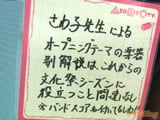 さわ子先生による
オープニングテーマの楽器
別解説は、これからの
文化祭シーズンに
役立つこと間違なし
※バンドスコアも付いてるしね